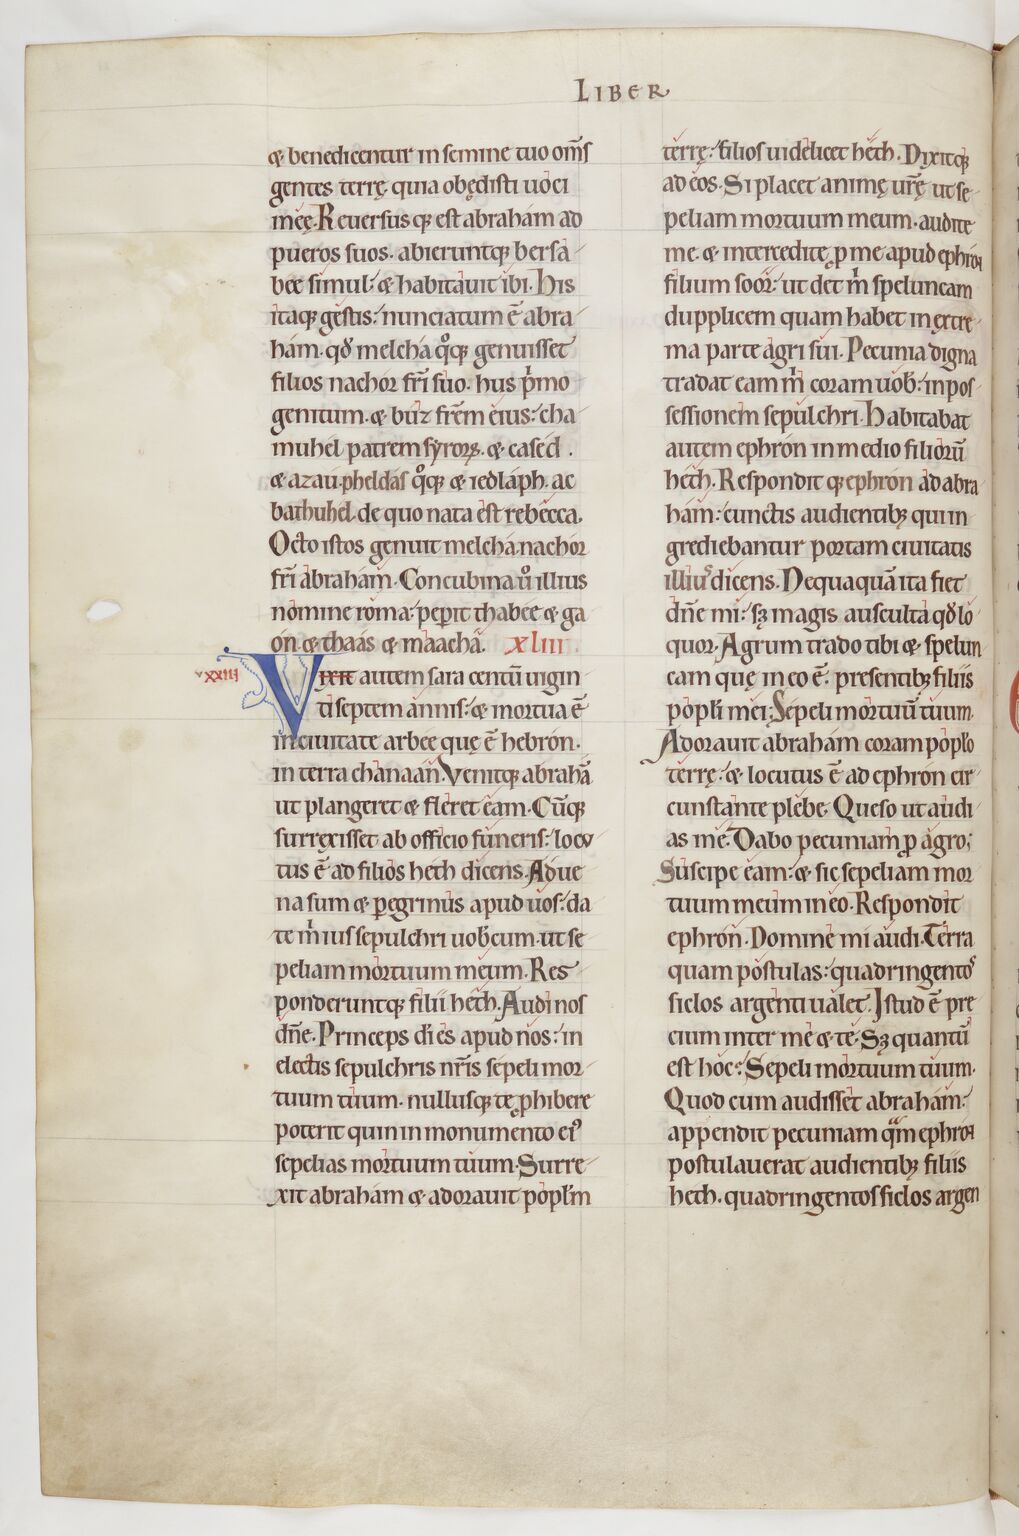 LIBER
& benedicentur in semine tuo om̅s
gentes terrę quia obędisti uoci
męę. Reuersus q; est abraham ad
pueros suos. abierunt q; bersa
bee simul: & habitauit ibi. His
itaq; gestis: nunciatum e̅ abra
ham. qđ melcha qͦq; genuisset
filios nachor fr̅i suo. hus pͥmo
genitum. & buz fr̅em eius: cha
muhel patrem syroꝝ. & cased.
& azau. pheldas qͦq; & iedlaph. ac
bathuhel. de quo nata est rebecca.
Octo istos genuit melcha nachor
fr̅i abraham. Concubina uͦ illius
nomine roma: peꝑit thabee & ga
on. & thaas & maacha. xliii
xxiii Vixit autem sara centu̅ uigin
ti septem annis: & mortua e̅
in ciuitate arbee quę e̅ hebron.
in terra chanaan. Venitq; abraha̅
ut plangeret & fleret eam. Cu̅q;
surrexisset ab officio funeris: locu
tus e̅ ad filios heth dicens. Adue
na sum & ꝑegrinus apud uos: da
te mͥ ius sepulchri uobcum. ut se
peliam mortuum meum. Res
ponderuntq; filii heth. Audi nos
dn̅e. Princeps di es apud nos: in
electis sepulchris nr̅is sepeli mor
tuum tuum. nullusq; te ꝓhibere
poterit quin in monumento eiꝰ
sepelias mortuum tuum. Surre
xit abraham & adorauit popl̅m
terrę: filios uidelicet heth. Dixitq;
ad eos. Si placet animę ur̅ę ut se
peliam mortuum meum. audite
me. & intercedite ꝓ me apud ephron
filium soor: ut det mͥ speluncam
dupplicem quam habet in extre
ma parte agri sui. Pecunia digna
tradat eam mͥ coram uob: in pos
sessionem sepulchri. Habitabat
autem ephron in medio filioru̅
heth. Respondit q; ephron ad abra
ham: cunctis audientib; qui in
grediebantur portam ciuitatis
illiuˢ dicens. Nequaqua̅ ita fiet
dn̅e mi: sꝫ magis ausculta qđ lo
quor. Agrum trado tibi & spelun
cam quę in eo e̅. presentib; filiis
popl̅i mei; Sepeli mortuu̅ tuum.
Adorauit abraham coram popl̅o
terrę: & locutus e̅ ad ephron cir
cunstante plebe. Queso ut audi
as me. Dabo pecuniam ꝓ agro;
Suscipe eam: & sic sepeliam mor
tuum meum in eo. Respondit
ephron. Domine mi audi. Terra
quam postulas: quadringentoˢ
siclos argenti ualet. Istud e̅ pre
cium inter me & te. Sꝫ quantu̅
est hoc: Sepeli mortuum tuum.
Quod cum audisset abraham:
appendit pecuniam qᵃm ephron
postulauerat audientib; filiis
heth. quadringentos siclos argen